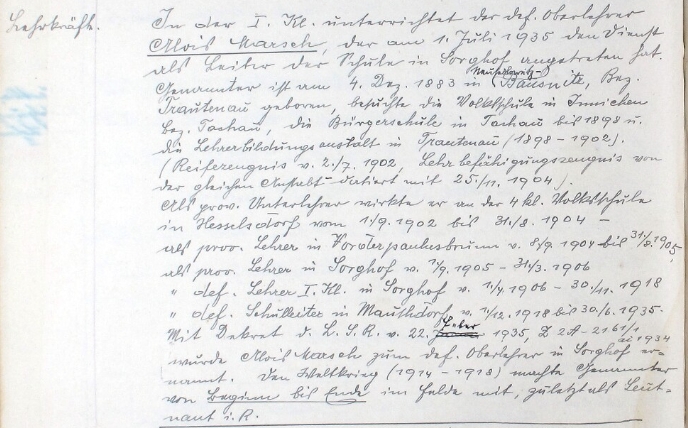 Lehrkräfte.
In der I. Kl. unterrichtet der def. Oberlehrer
Alois Marsch, der am 1. Juli 1935 den Dienst
als Leiter der Schule in Sorghof angetreten hat.
Genannter ist am 4. Dez. 1883 in Bausnitz, Bez.
Trautenau geboren, besuchte die Volksschule in Innichen
Bez. Tachau, die Bürgerschule in Tachau bis 1898 u.
die Lehrerbildungsanstalt in Trautenau (1898 - 1902).
(Reifezeugnis v. 2./7. 1902, Lehrbefähigungszeugnis von
der gleichen Anstalt datiert mit 25./11. 1904).
Als prov. Unterlehrer wirkte er an der 4 kl. Volksschule
in Hesselsdorf vom 1./9. 1902 bis 31./8. 1904 -
als prov. Lehrer in v. 8./9. 1904 bis 31./8. 1905,
als prov. Lehrer in Sorghof v. 1./9. 1905 - 31./3. 1906
" def. Lehrer I. Kl. in Sorghof v. 1./4 1906 - 30./11. 1918
" def. Schulleiter in Mauthdorf v. 1./12. 1918 bis 30./6. 1935.
Mit Dekret d. L. S. R. v. 22. Feber 1935, Z 2A - 2161/1
ai 1934
wurde Alois Marsch zum def. Oberlehrer in Sorghof er-
nannt. Den Weltkrieg (1914 - 1918) machte Genannter
von Beginn bis Ende im Felde mit, zuletzt als Leut-
nant i. R.